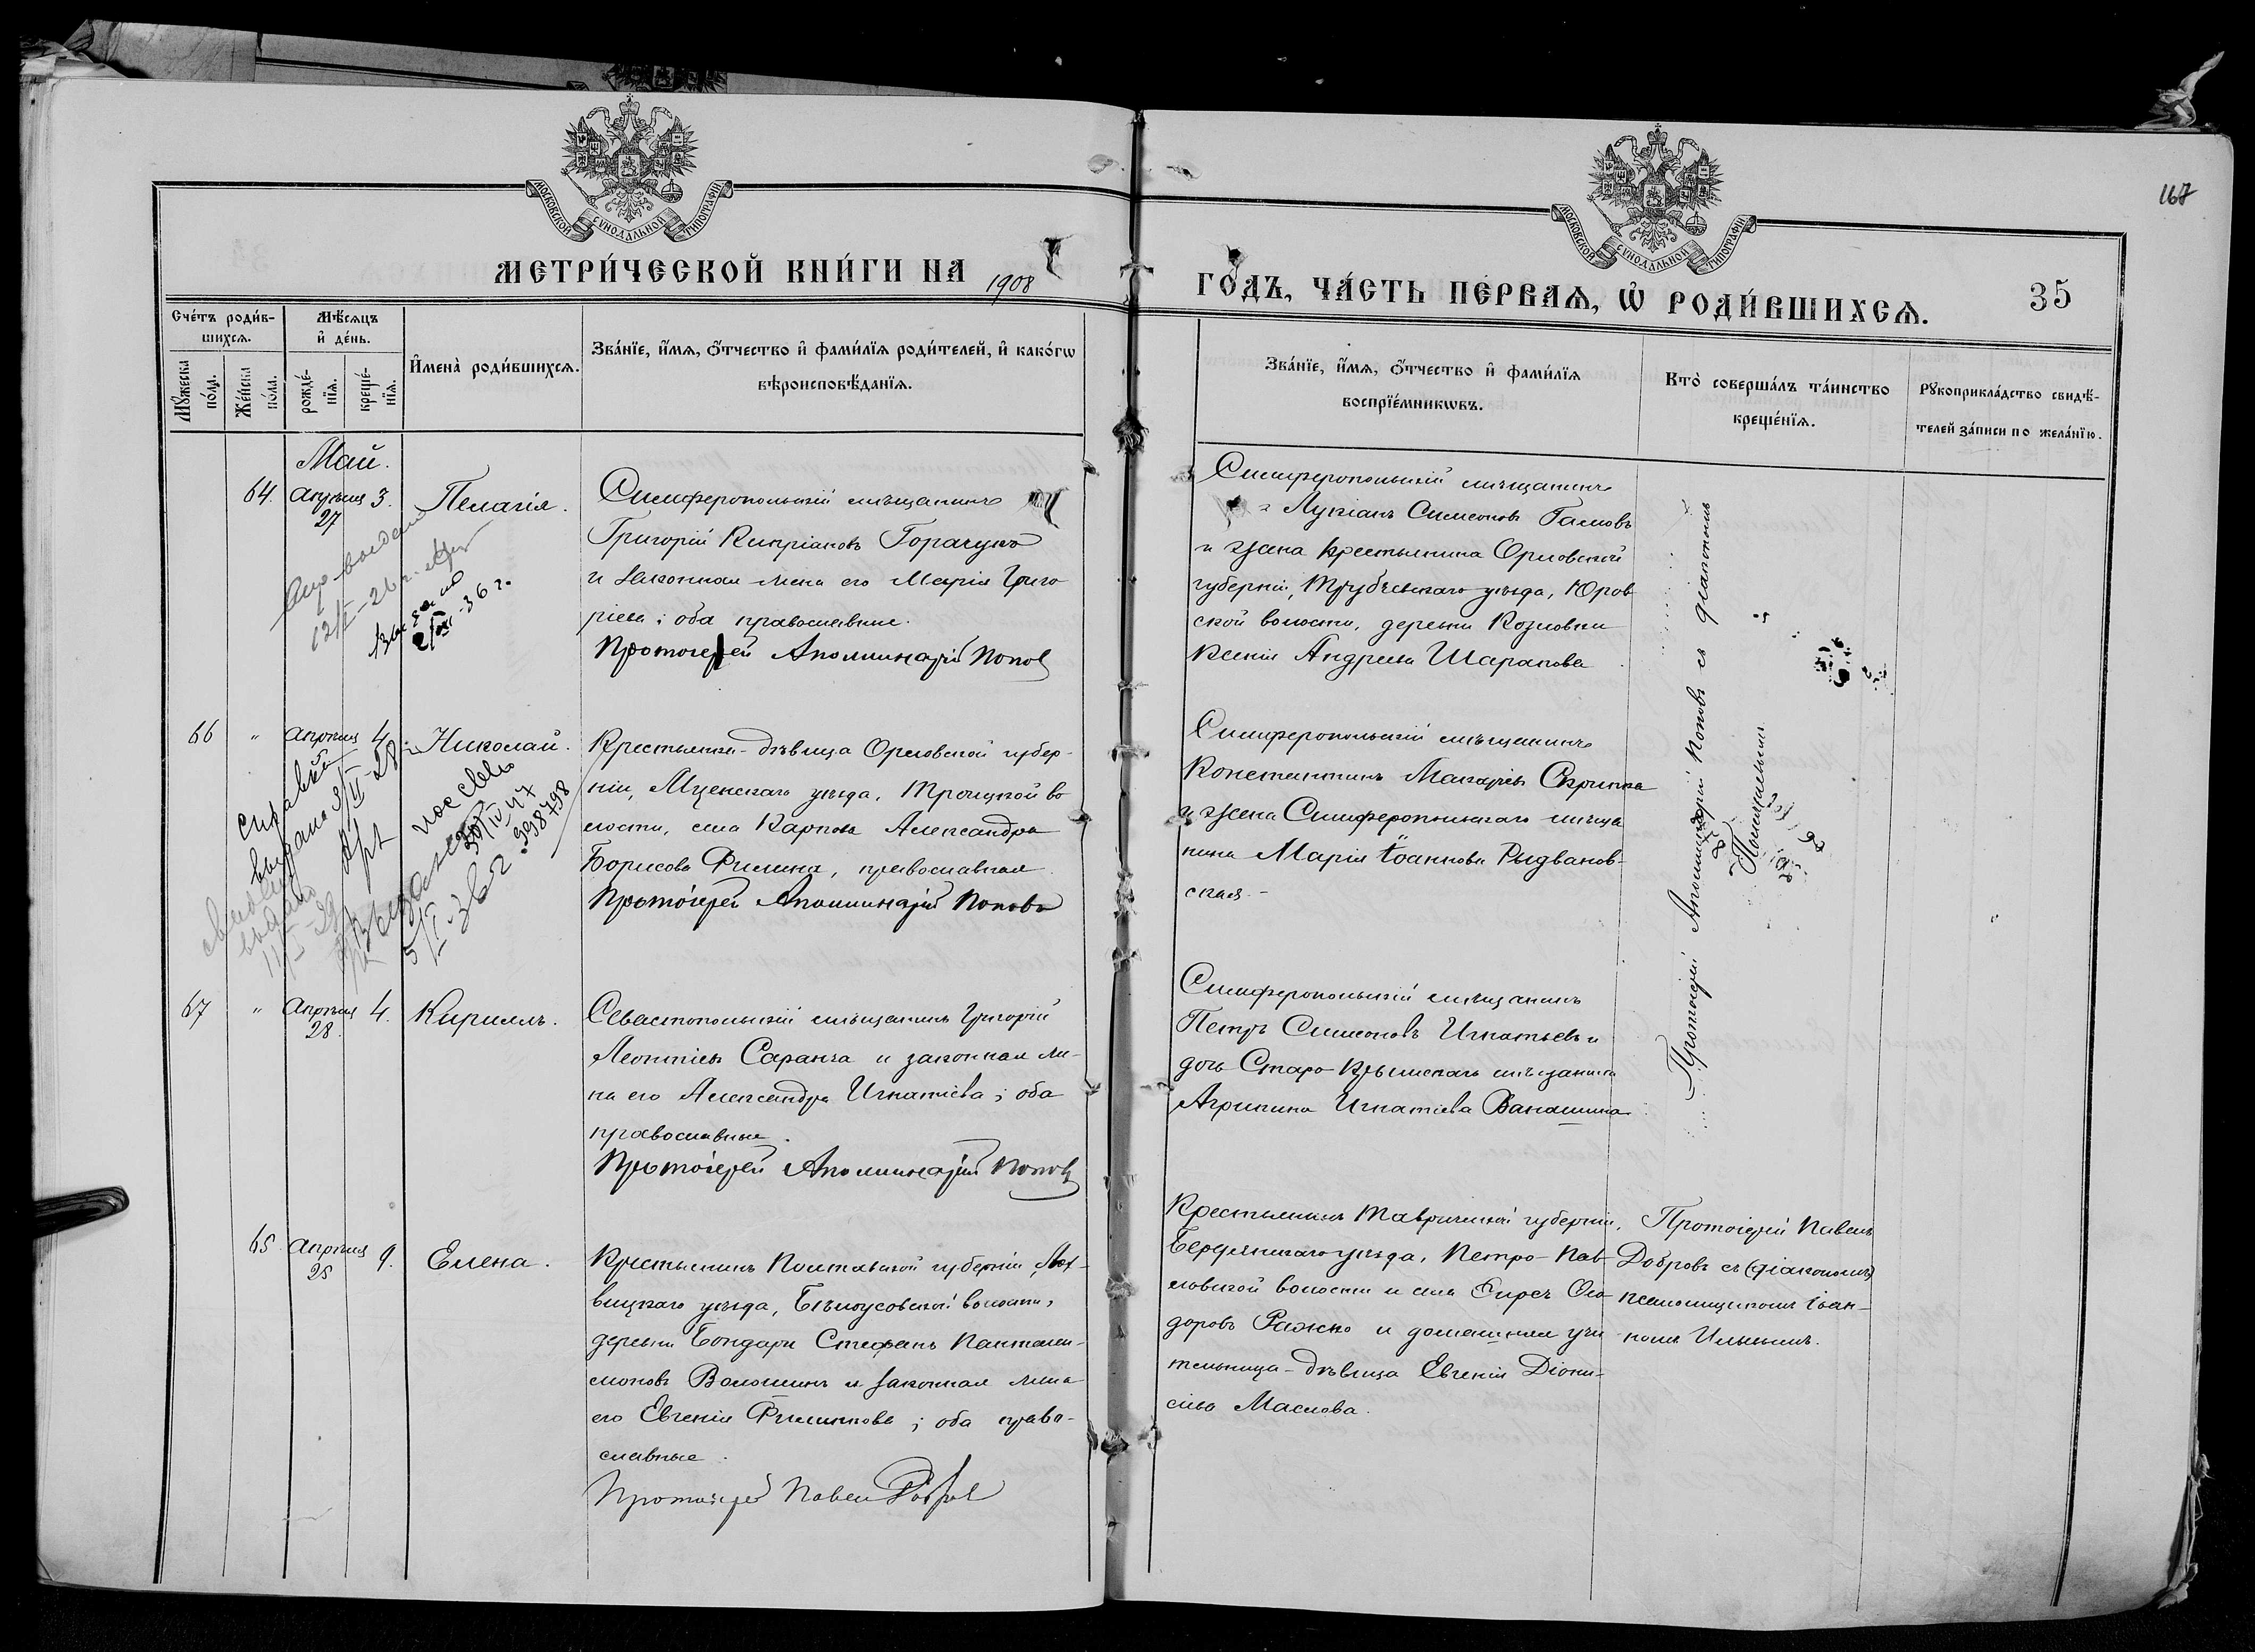 МОСКОВСКОЙ СУНОДАЛЬНОЙ ТИПОГРАФІИ
МОСКОВСКОЙ СУНОДАЛЬНОЙ ТИПОГРАФІИ
167
МЕТРИ́ЧЕСКОЙ КНИ́ГИ НА 1908
ГО́ДЪ, ЧА́СТЬ ПЕ́РВАѦ, Ѽ РОДИ́ВШИХСѦ.
35
Сче́тъ роди́в-
шихсѧ.
Мꙋжеска по́ла.
Же́нска по́ла.
Мѣ́сѧцъ и҆ де́нь.
рожде́-
нїѧ.
креще́-
нїѧ.
И҆мена̀ роди́вшихсѧ.
Зва́нїе, и҆́мѧ, ѻ҆́тчество и҆ фами́лїѧ роди́телей, и҆ како́гѡ
вѣроисповѣ́данїѧ.
Зва́нїе, и҆́мѧ, ѻ҆́тчество и҆ фами́лїѧ
воспрїе́мникѡвъ.
Кто̀ соверша́лъ та́инство
креще́нїѧ.
Рꙋкоприкла́дство свидѣ́-
телей за́писи по жела́нїю.
Май.
64. Апрѣля 27 3. Пелагія.
Симферопольскій мѣщанинъ
Григорій Кипріановъ Горачуко
и законная жена его Марія Григо
ріева; оба православные.
Протоіерей Аполлинарій Попов
Симферопольскій мѣщанинъ
Лукіанъ Симеоновъ Гамовъ
и жена крестьянина Орловской
губерніи, Трубчевскаго уѣзда, Юров
ской волости, деревни Козловки
Ксенія Андреева Шарапова
12/I-26 г.
36 г.
66 " Апрѣля 4. Николай.
Крестьянка-дѣвица Орловской губер-
ніи, Мценскаго уѣзда, Троицкой во
лости, села Карпова Александра
Борисова Филина, православная.
Протоіерей Аполлинарій Поповъ
Симферопольскій мѣщанинъ
Константинъ Макаріевъ Скрипка
и жена Симферопольскаго мѣща
нина Марія Іоаннова Рыдванов-
ская.-
справка
выдано
выдано
Протоіерей Аполлинарій Поповъ съ діакономъ
67 " Апрѣля 28. 4. Кириллъ.
Севастопольскій мѣщанинъ Григорій
Леонтіевъ Саранча и законная же-
на его Александра Игнатіева; оба
православные.
Протоіерей Аполлинарій Поповъ
Симферопольскій мѣщанинъ
Петръ Симеоновъ Игнатьевъ и
дочь Старо-Крымскаго мѣщанина
Агрипина Игнатіева Ванашина
65 Апрѣля 25 9. Елена.
Крестьянинъ Полтавской губерніи, Лох-
вицкаго уѣзда, Бѣлоусовской волости,
деревни Бондари Стефанъ Пантелеи-
моновъ Волошинъ и законная жена
его Евгенія Филиппова; оба право-
славные.
Протоіерей Павел Добров
Крестьянинъ Таврической губерніи,
Бердянскаго уѣзда, Петро-Пав-
ловской волости и села Спире Ѳео-
доровъ Ражко и домашняя учи
тельница-дѣвица Евгенія Діони-
сіева Маслова.
Протоіерей Павелъ
Добровъ съ (діакономъ)
псаломщикомъ Іоан-
номъ Ильинымъ.